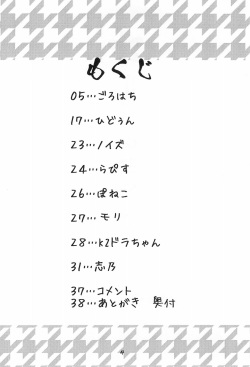 もくじ
05…ごろはち
17…ひどぅん
23…ノイズ
24…らぴす
26…ぽねこ
27…モリ
28…KZドラちゃん
31…志乃
37…コメント
38…あとがき 奥付
4